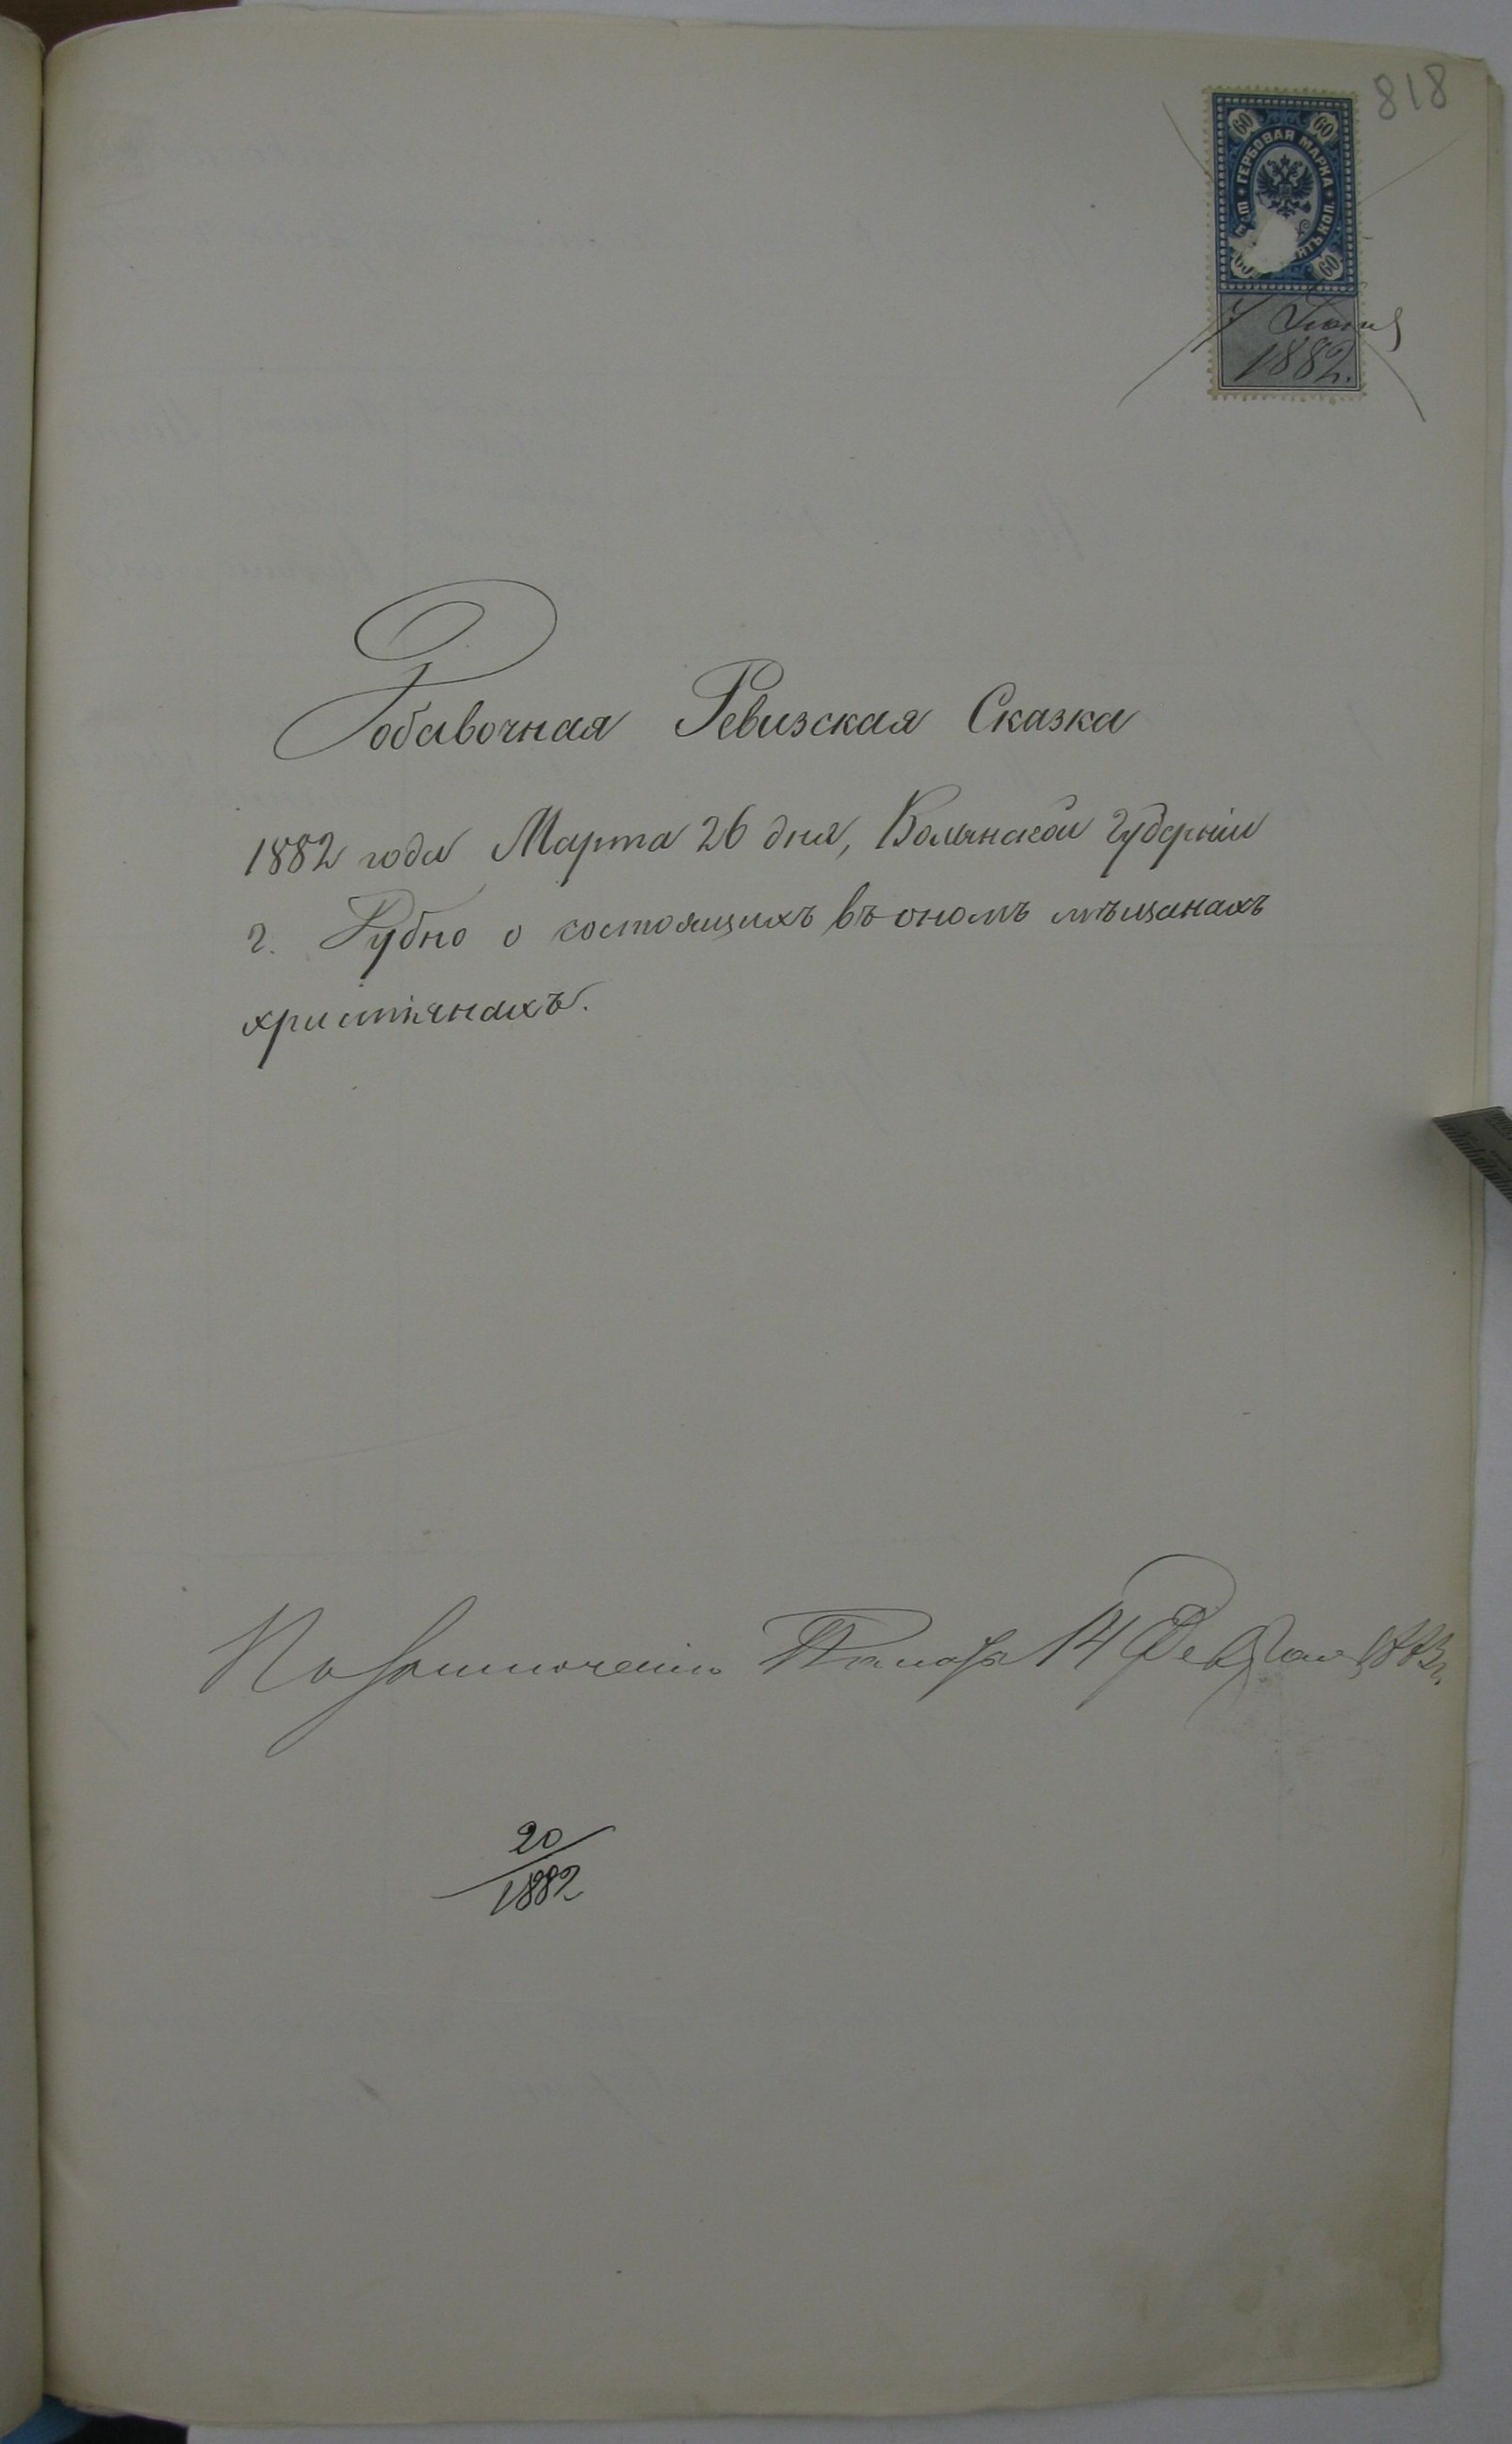 818
60 60
ГЕРБОВАЯ МАРКА
КОП.
60
Іюня
1882.
Добавочная Ревизская Сказка
1882 года Марта 26 дня, Волынской губерніи
г. Дубно о состоящихъ въ ономъ мѣщанахъ
христіянахъ.
По заключенію Палаты 14 Февраля 1883 г.
20
1882